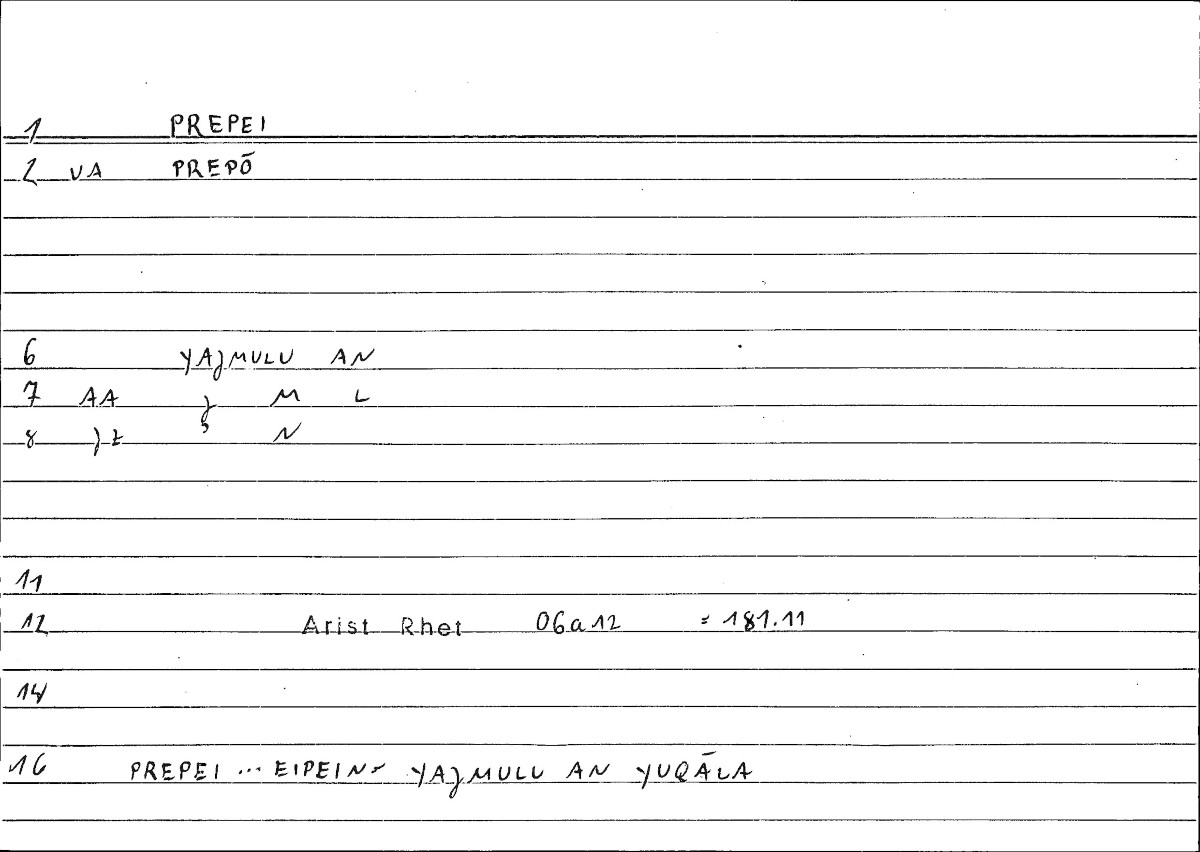 1 PREPEI
2 VA PREPŌ
6 YAJMULU AN
7 AA J M L
8 N
11
12 Arist Rhet 06a12 = 181.11
14
16 PREPEI ... EIPEIN = YAJMULU AN YUQĀLA